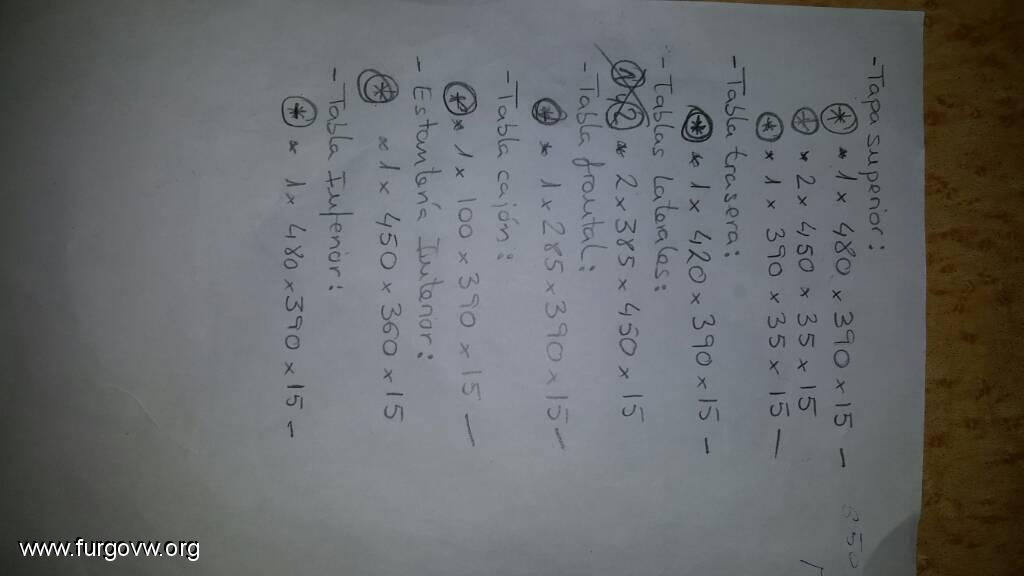 - Tapa superior:
* * 1 x 480 x 390 x 15 -
* * 2 x 450 x 35 x 15
* * 1 x 390 x 35 x 15 -
- Tabla trasera:
* * 1 x 420 x 390 x 15 -
- Tablas Laterales:
* 2 x 385 x 450 x 15
- Tabla frontal:
* * 1 x 285 x 390 x 15 -
- Tabla cajón:
* * 1 x 100 x 390 x 15 -
- Estantería Interior:
* * 1 x 450 x 360 x 15
- Tabla Inferior:
* * 1 x 480 x 390 x 15 -
www.furgovw.org